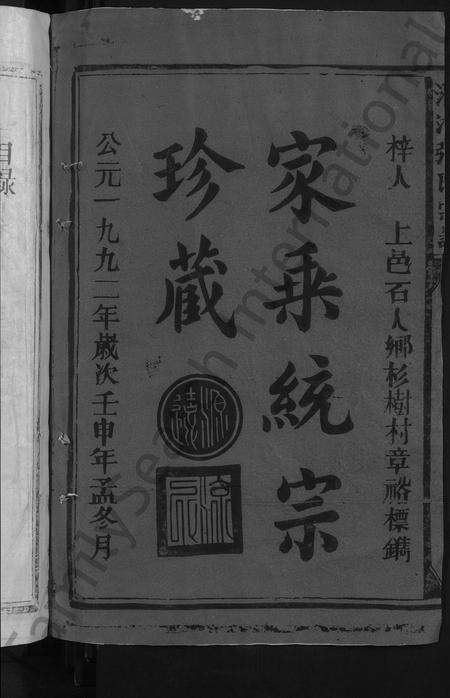 梓人 上邑石人鄉杉樹村章裕標鐫
家乘統宗
珍藏
源遠
流長
公元一九九二年歲次壬申年孟冬月
目錄
FamilySearch International